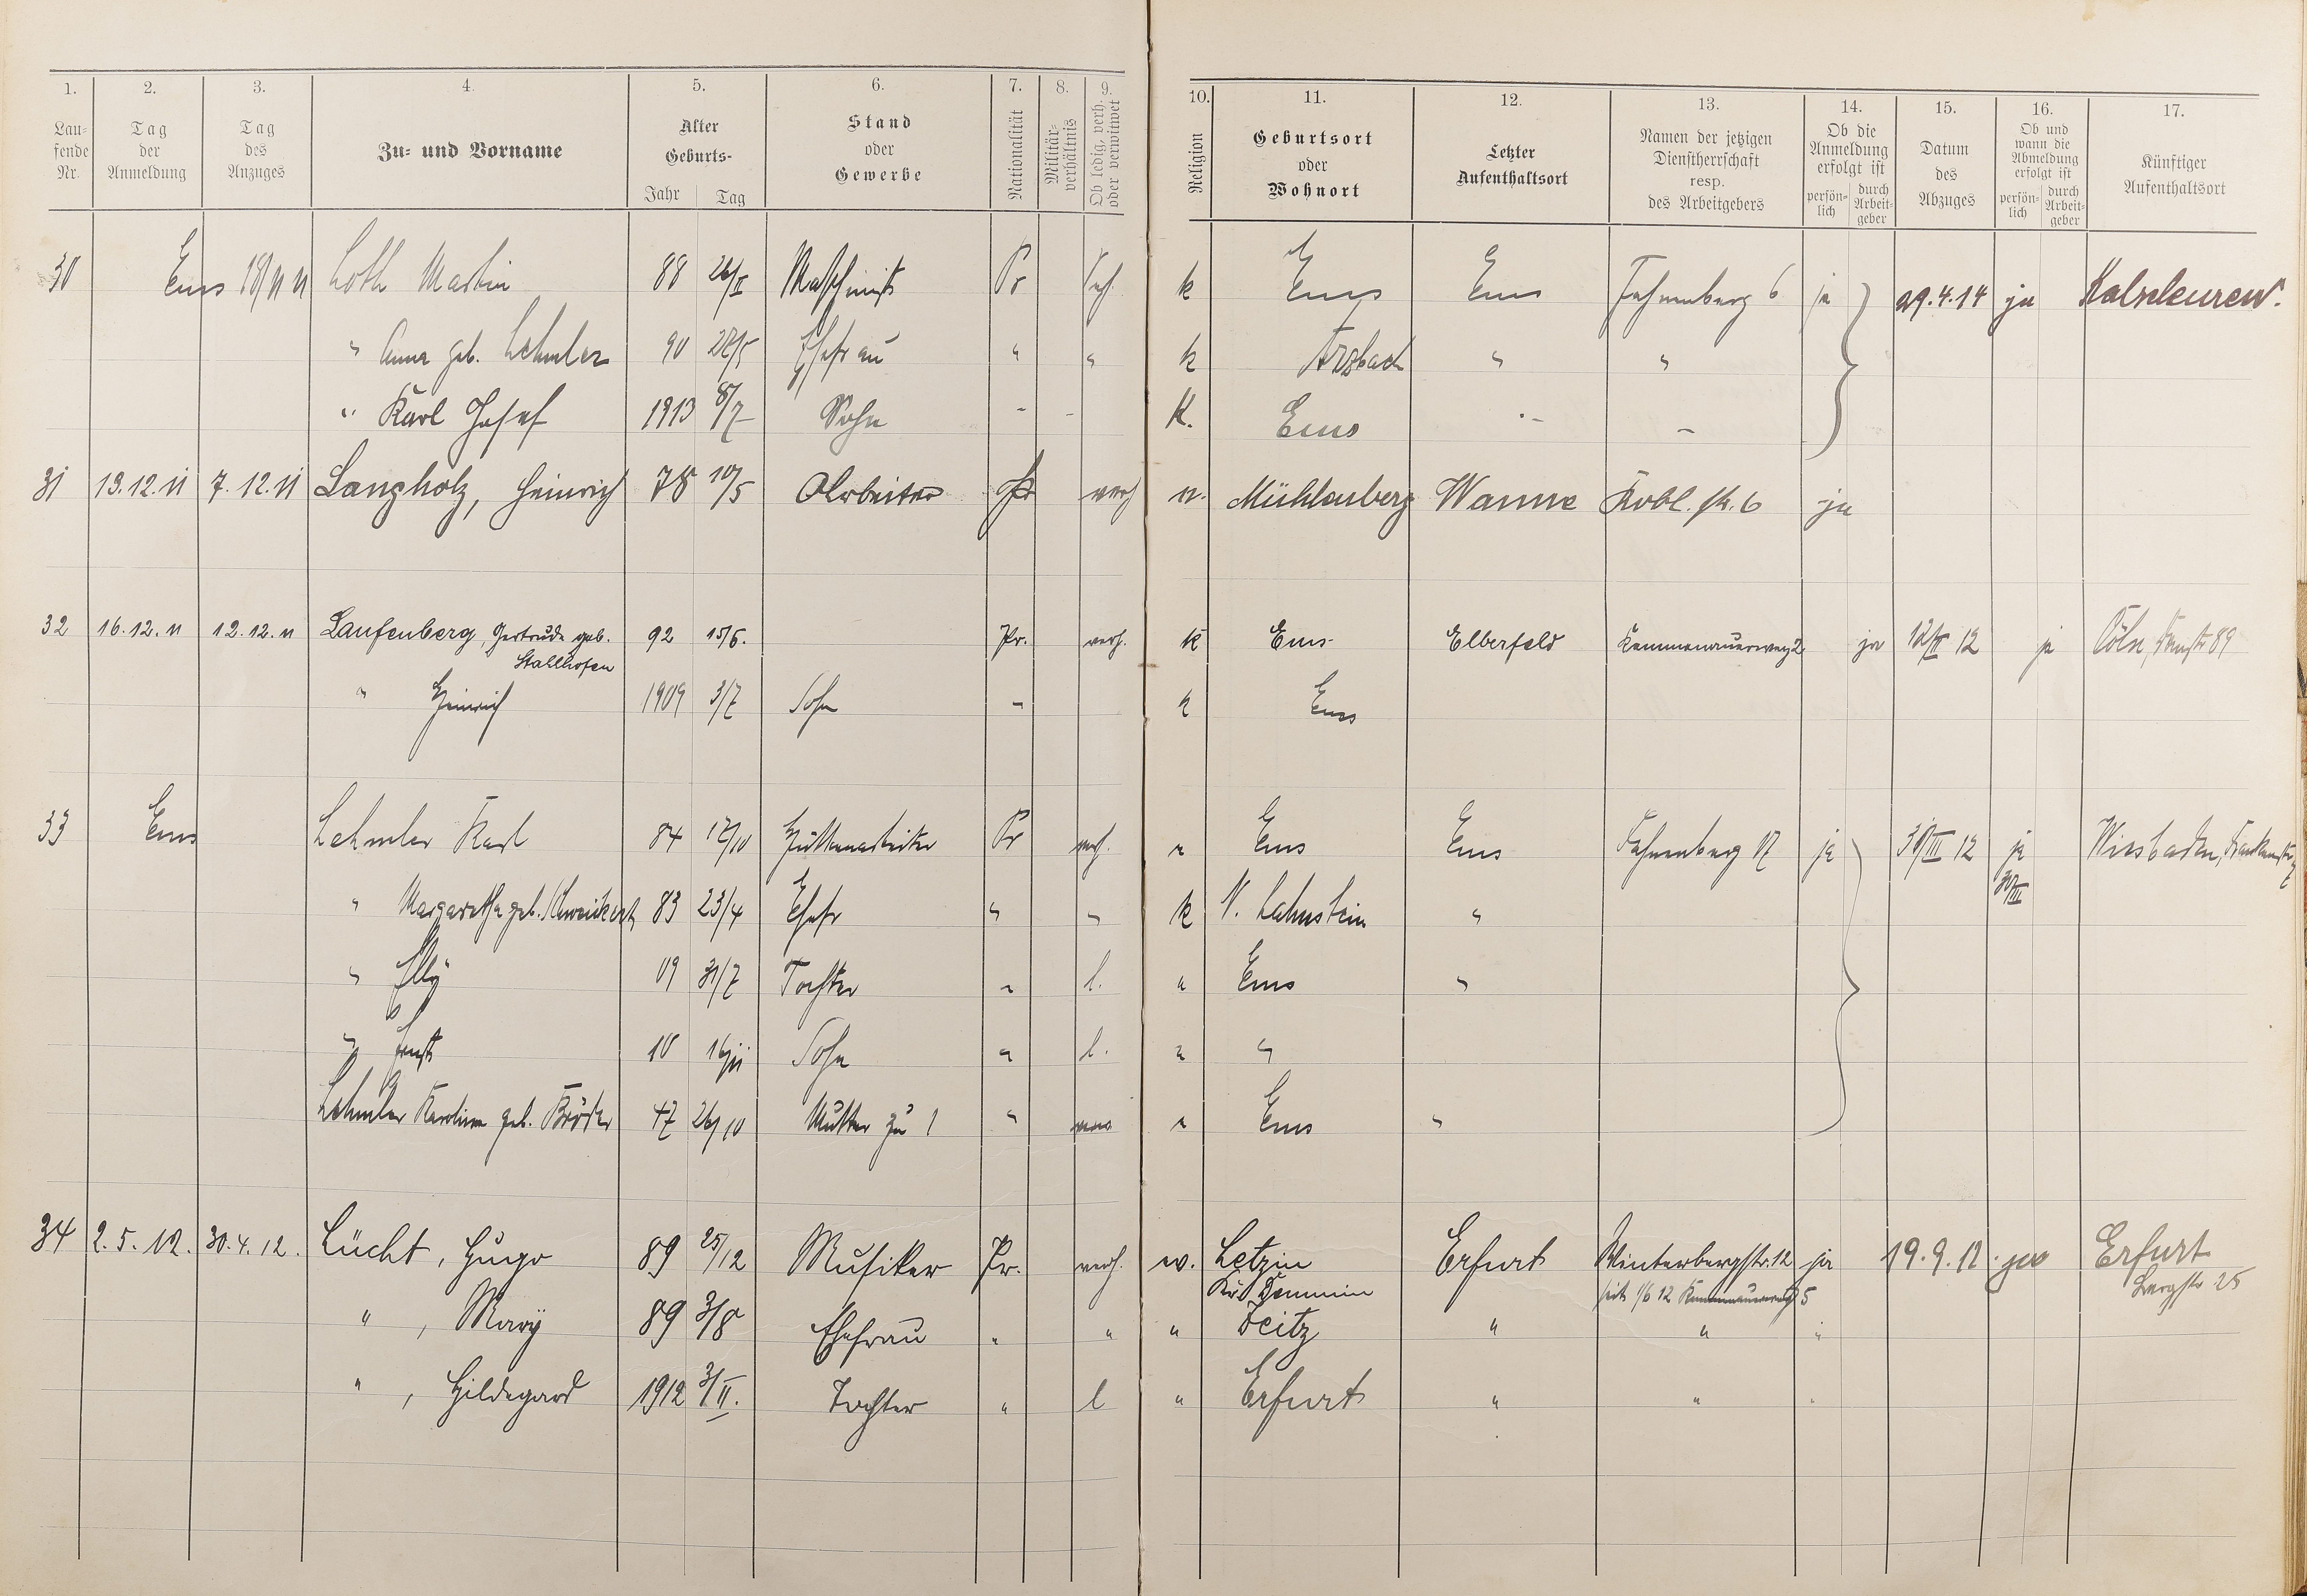 1. 2. 3. 4. 5. 6. 7. 8. 9. 10. 11. 12. 13. 14. 15. 16. 17.
Lau-
fende
Nr.
Tag
der
Anmeldung
Tag
des
Anzuges
Zu- und Vorname
Alter
Geburts-
Jahr Tag
Stand
oder
Gewerbe
Nationalität
Militär-
verhältnis
Ob ledig, verh.
oder verwitwet
Religion
Geburtsort
oder
Wohnort
Letzter
Aufenthaltsort
Namen der jetzigen
Dienstherrschaft
resp.
des Arbeitgebers
Ob die
Anmeldung
erfolgt ist
persön-
lich
durch
Arbeit-
geber
Datum
des
Abzuges
Ob und
wann die
Abmeldung
erfolgt ist
persön-
lich
durch
Arbeit-
geber
Künftiger
Aufenthaltsort
30 Ems 18/11 11 Loth Martin 88 26/II Maschinist Pr k Ems Ems Fahnenberg 6 ja 29.4.14 ja
" Anna geb. Lehmler 90 Ehefrau " " k Arzbach " "
" Karl Josef 1913 8/7 Sohn - - K. Ems - -
31 13.12.11 7.12.11 Langholz, Heinrich 78 10/5 Arbeiter Pr verh Mühlenberg Wanne Kobl. str. 6 ja
32 16.12.11 12.12.11 Laufenberg, Gertrude geb. 92 15/6. Pr. verh. k Ems Elberfeld Kemmenauerweg 2 ja 12/II 12 ja Cöln, 89
Stahlhofen
" Heinrich 1909 3/7 Sohn - k Ems
33 Ems Lehmler Karl 84 12/10 Hüttenarbeiter Pr verh. Ems Ems Fahnenberg 17 ja 30/III 12 ja Wiesbaden, Frankenstr
30/III
" Margaretha geb. Schweickert 83 23/4 Ehefr " " k N. Lahnstein "
" Elly 09 31/7 Tochter " l. " Ems "
" Ernst 10 16/11 Sohn " l. " "
Lehmler Karoline geb. Bröder 47 26/10 Mutter zu 1 " Ems "
34 2.5.12. 30.4.12. Lücht, Hugo 89 25/12 Musiker Pr. verh. Letzin Erfurt Winterbergstr. 12 ja 19.9.12. ja Erfurt
Krs Demmin seit 1/6 12 Kemmenauerweg 5 Bergstr 25
" , Mary 89 3/8 Ehefrau " " " Zeitz " " "
" , Hildegard 1912 3/II. Tochter " l " Erfurt " " "